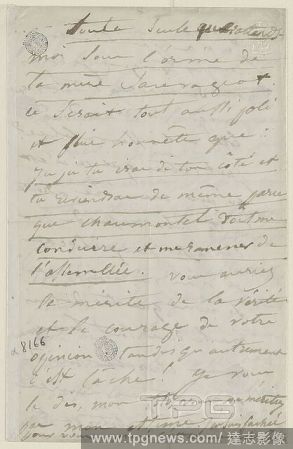 toute seule
moi sous l'orme de
la mère
ce serait tout aussi joli
et plus honnête que :
tu iras de ton côté et
tu reviendras de même parce
que chaumontel doit me
conduire et me ramener de
l'assemblée. vous auriez
le mérite de la vérité
et le courage de votre
opinion tandis qu'autrement
c'est lâche ! je vous
le dis, mon
pas mon estime
a8166
TPG
www.tpgnews.com / 達志影像